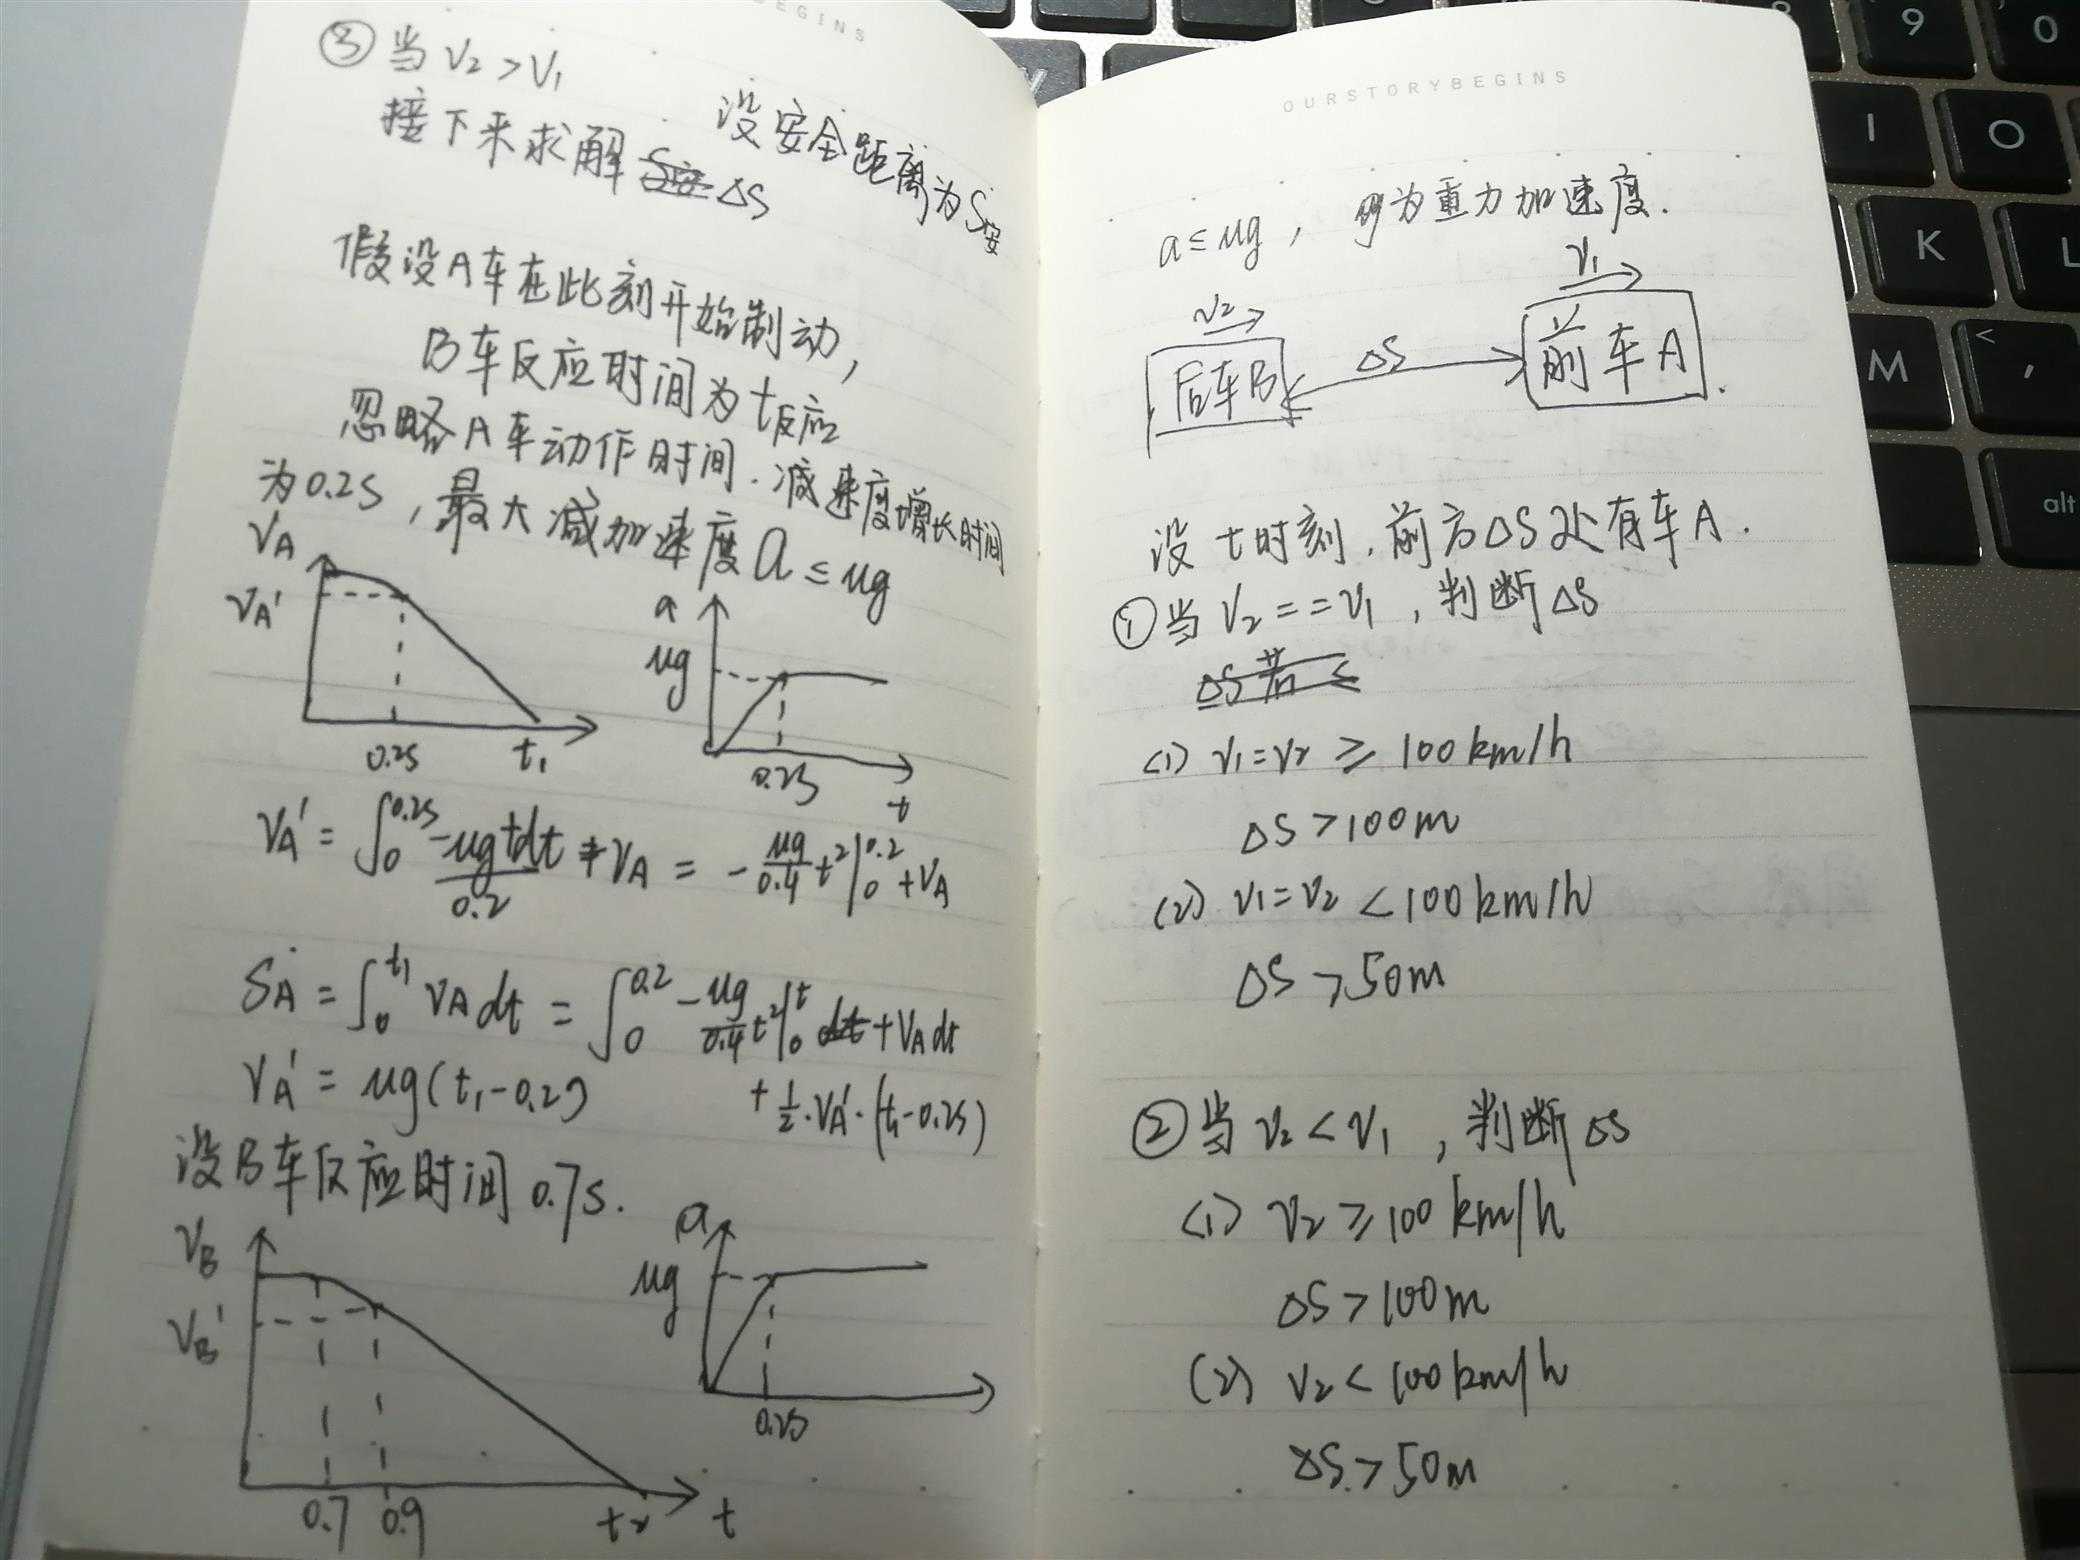 BEGINS
③当 V₂ > V₁
设安全距离为S安
接下来求解 ΔS
假设A车在此刻开始制动,
B车反应时间为t反应
忽略A车动作时间.减速度增长时间
为0.2S,最大减加速度a≤μg
VA
VA'
0.2S
t₁
a
μg
0.2S
t
VA' = ∫₀^0.2S -μgtdt/0.2 + VA = -μg/0.4 t²|₀^0.2 + VA
SA = ∫₀^t₁ VA dt = ∫₀^0.2 -μg/0.4 t²|₀^t + VA dt
+ 1/2·VA'·(t₁-0.2S)
VA' = μg(t₁-0.2)
设B车反应时间0.7s.
VB
VB'
0.7
0.9
t₂
t
a
μg
0.2S
OURSTORYBEGINS
a≤μg, g为重力加速度.
V₂
V₁
后车B
ΔS
前车A
设t时刻,前方ΔS处有车A.
①当V₂==V₁,判断ΔS
ΔS若≤
(1) V₁=V₂ ≥ 100km/h
ΔS>100m
(2) V₁=V₂ <100km/h
ΔS>50m
②当V₂<V₁,判断ΔS
(1) V₂≥100km/h
ΔS>100m
(2) V₂<100km/h
ΔS>50m
9
0
I
O
K
L
M
<
,
alt